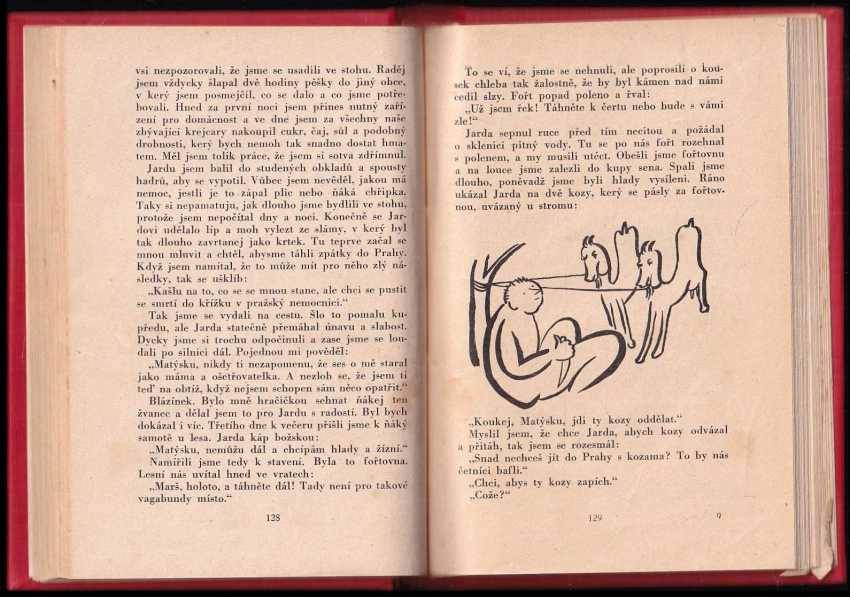 vsi nezpozorovali, že jsme se usadili ve stohu. Raděj
jsem vždycky šlapal dvě hodiny pěšky do jiný obce,
v kerý jsem posnejčil, co se dalo a co jsme potře-
bovali. Hned za první noci jsem přines nutný zaří-
zení pro domácnost a ve dne jsem za všechny naše
zbývající krejcary nakoupil cukr, čaj, sůl a podobný
drobnosti, kerý bych nemoh tak snadno dostat hma-
tem. Měl jsem tolik práce, že jsem si sotva zdřímnul.
Jardu jsem balil do studených obkladů a spousty
hadrů, aby se vypotil. Vůbec jsem nevěděl, jakou má
nemoc, jestli je to zápal plic nebo ňáká chřipka.
Taky si nepamatuju, jak dlouho jsme bydlili ve stohu,
protože jsem nepočítal dny a noci. Konečně se Jar-
dovi udělalo líp a moh vylezt ze slámy, v kerý byl
tak dlouho zavrtanej jako krtek. Tu teprve začal se
mnou mluvit a chtěl, abysme táhli zpátky do Prahy.
Když jsem namítal, že to může mít pro něho zlý ná-
sledky, tak se ušklíb:
„Kašlu na to, co se se mnou stane, ale chci se pustit
se smrtí do křížku v pražský nemocnici.“
Tak jsme se vydali na cestu. Šlo to pomalu ku-
předu, ale Jarda statečně přemáhal únavu a slabost.
Dycky jsme si trochu odpočinuli a zase jsme se lou-
dali po silnici dál. Pojednou mi pověděl:
„Matýsku, nikdy ti nezapomenu, že ses o mě staral
jako máma a ošetřovatelka. A nezlob se, že jsem ti
teď na obtíž, když nejsem schopen sám něco opatřit.“
Blázínek. Bylo mně hračičkou sehnat ňákej ten
žvanec a dělal jsem to pro Jardu s radostí. Byl bych
dokázal i víc. Třetího dne k večeru přišli jsme k ňáký
samotě u lesa. Jarda káp božskou:
„Matýsku, nemůžu dál a chcípám hlady a žízní.“
Namířili jsme tedy k stavení. Byla to fořtovna.
Lesní nás uvítal hned ve vratech:
„Marš, holoto, a táhněte dál! Tady není pro takové
vagabundy místo.“
128
To se ví, že jsme se nehnuli, ale poprosili o kou-
sek chleba tak žalostně, že by byl kámen nad námi
cedil slzy. Fořt popad poleno a řval:
„Už jsem řek! Táhněte k čertu nebo bude s vámi
zle!“
Jarda sepnul ruce před tím necitou a požádal
o sklenici pitný vody. Tu se po nás fořt rozehnal
s polenem, a my musili utéct. Obešli jsme fořtovnu
a na louce jsme zalezli do kupy sena. Spali jsme
dlouho, poněvadž jsme byli hlady vysíleni. Ráno
ukázal Jarda na dvě kozy, kerý se pásly za fořtov-
nou, uvázaný u stromu:
„Koukej, Matýsku, jdi ty kozy oddělat.“
Myslil jsem, že chce Jarda, abych kozy odvázal
a přitáh, tak jsem se rozesmál:
„Snad nechceš jít do Prahy s kozama? To by nás
četníci bafli.“
„Chci, abys ty kozy zapích.“
„Cože?“
129
9